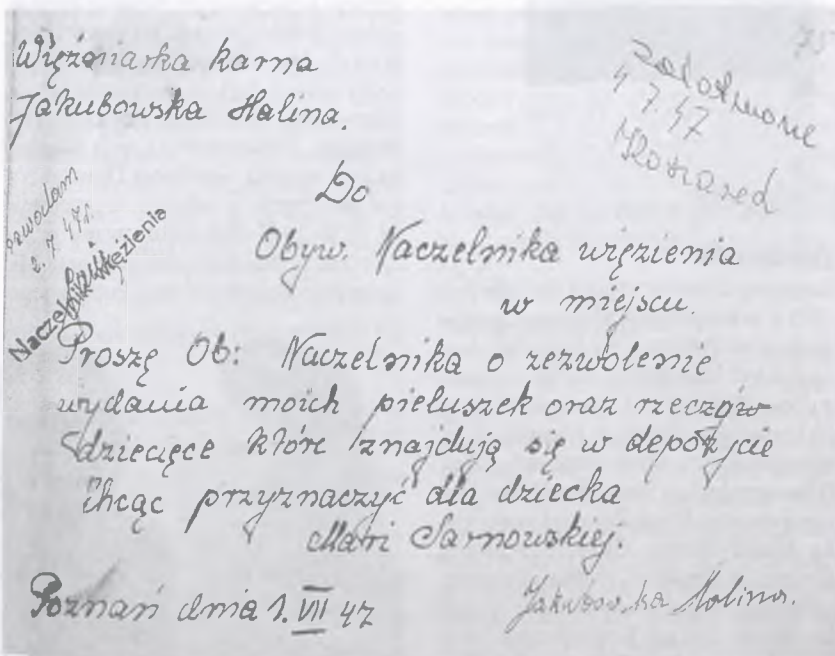 Więźniarka karna
Jakubowska Halina.
Załatwione
4 7 47
Do
Obyw. Naczelnika więzienia
w miejscu.
2. 7. 47 r.
Naczelnik Więzienia
Proszę Ob: Naczelnika o zezwolenie
wydania moich pieluszek oraz rzeczów
dziecięce które znajdują się w depozycie
chcąc przyznaczyć dla dziecka
Mari Sarnowskiej.
Poznań dnia 1. VII 47
Jakubowska Halina.